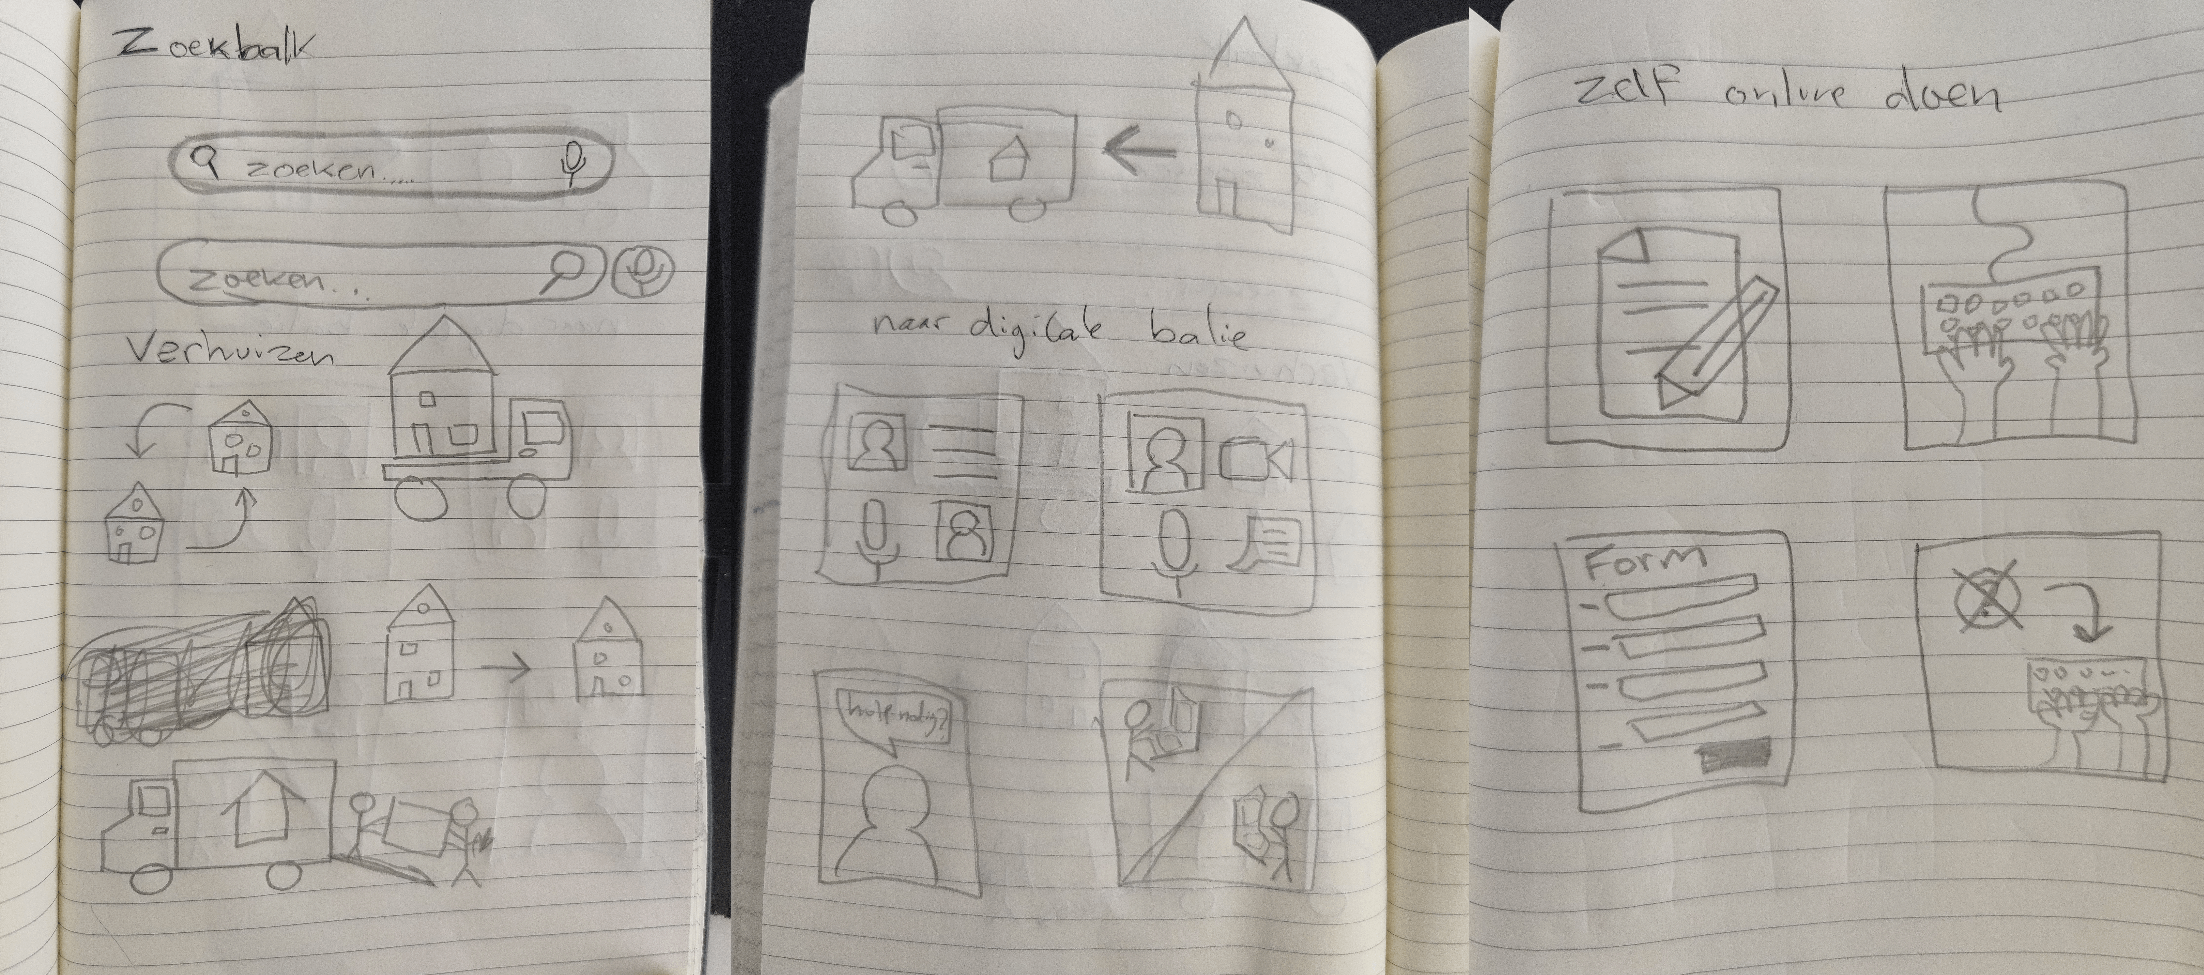 Zoekbalk
zoeken.....
zoeken...
Verhuizen
naar digitale balie
hulp nodig?
zelf online doen
Form